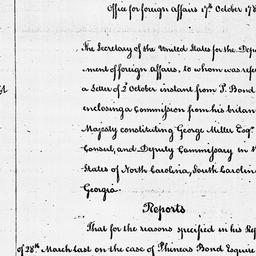 Office for foreign affairs 17th October 178
The Secretary of the United States for the Depa
ment of foreign affairs, to whom was refe
a Letter of 2d October instant from P. Bond
enclosing a Commission from his britan
Majesty constituting George Miller Esqr.
Consul, and Deputy Commissary in
States of North Carolina, South Carolin
Georgia.
Reports
That for the reasons specified in his Rep
of 28th March last on the case of Phineas Bond Esquire